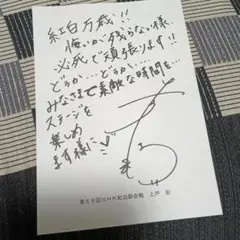 紅白万歳!!
悔いが残らない様、
必死で頑張ります!!
どうか…どうか…
みなさまで素敵な時間を…
ステージを
楽しめ
ます様に
第56回NHK紅白歌合戦 上戸 彩